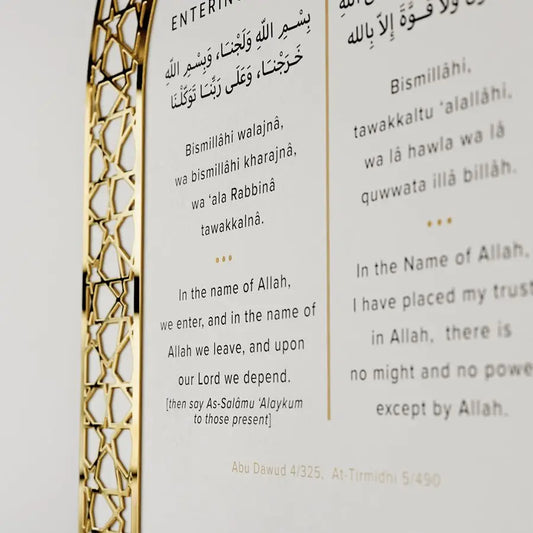 ENTERING
بِسْمِ اللَّهِ وَلَجْنَا، وَبِسْمِ اللَّهِ
خَرَجْنَا، وَعَلَى رَبِّنَا تَوَكَّلْنَا
Bismillâhi walajnâ,
wa bismillâhi kharajnâ,
wa ‘ala Rabbinâ
tawakkalnâ.
In the name of Allah,
we enter, and in the name of
Allah we leave, and upon
our Lord we depend.
[then say As-Salâmu ‘Alaykum
to those present]
وَلَا قُوَّةَ إِلَّا بِاللَّه
Bismillâhi,
tawakkaltu ‘alallâhi,
wa lâ hawla wa lâ
quwwata illâ billâh.
In the Name of Allah,
I have placed my trust
in Allah, there is
no might and no powe
except by Allah.
Abu Dawud 4/325, At-Tirmidhi 5/490